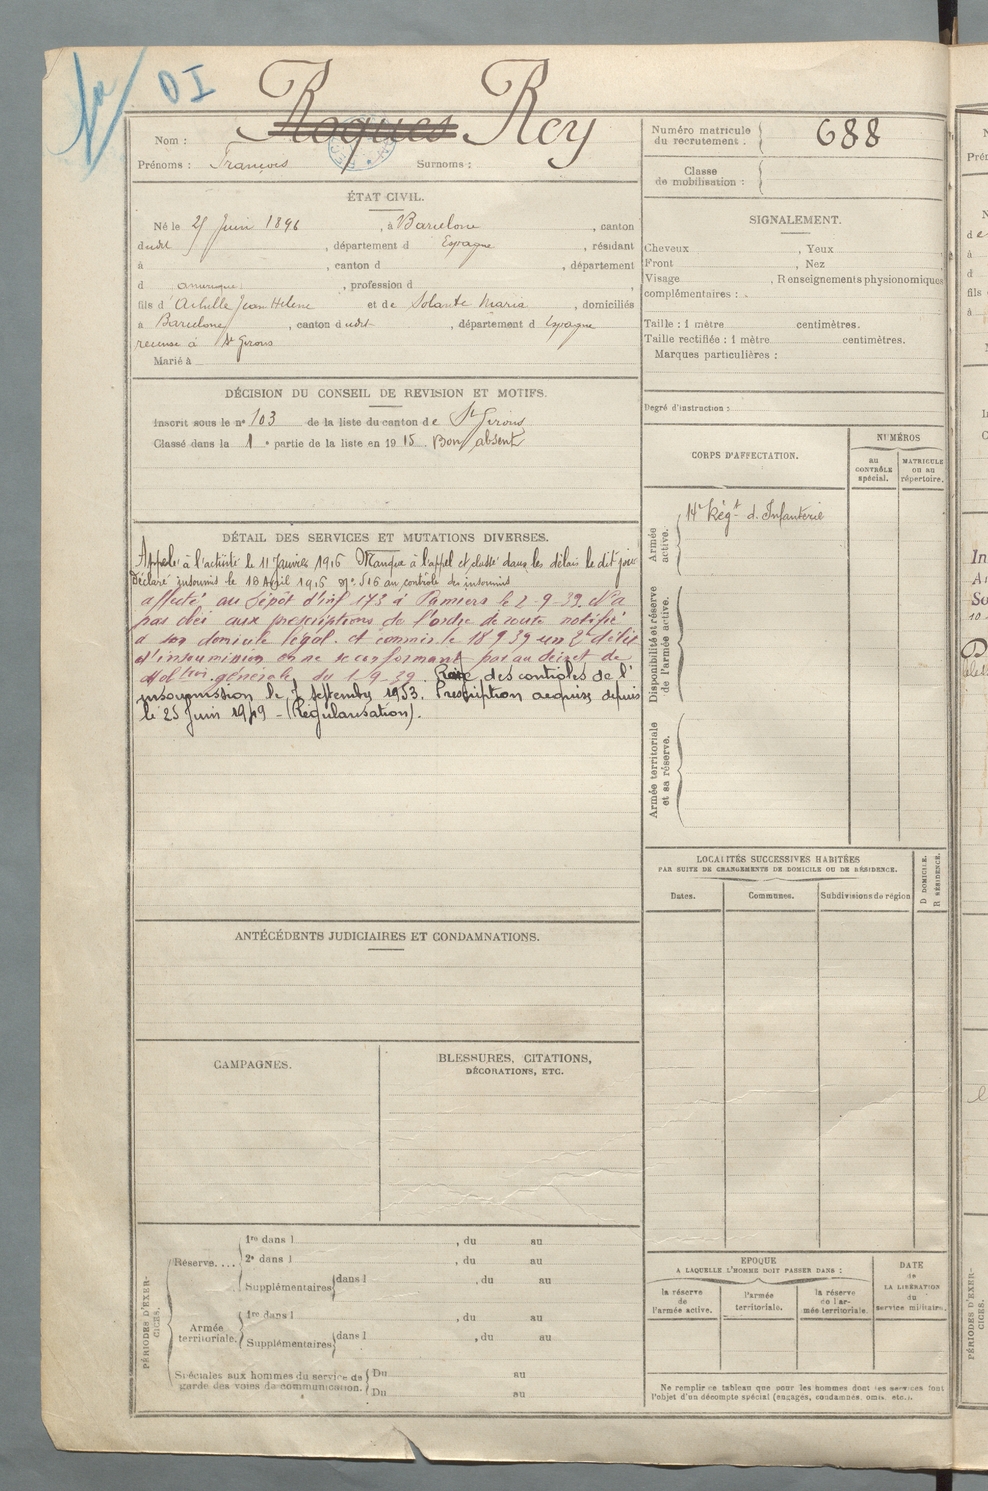 DI
Nom : Roques Rey
Prénoms : François Surnoms :
Numéro matricule du recrutement : 688
Classe de mobilisation :
ÉTAT CIVIL.
Né le 25 Juin 1896, à Barcelone, canton
dudit, département d Espagne, résidant
à , canton d , département
d amérique, profession d
fils d'Achille Jean Helene et de Solante Maria, domiciliés
à Barcelone, canton dudit, département d Espagne
recensé à St Girons
Marié à
SIGNALEMENT.
Cheveux , Yeux
Front , Nez
Visage , Renseignements physionomiques
complémentaires :
Taille : 1 mètre centimètres.
Taille rectifiée : 1 mètre centimètres.
Marques particulières :
Degré d'instruction :
DÉCISION DU CONSEIL DE REVISION ET MOTIFS.
Inscrit sous le n° 103 de la liste du canton de St Girons
Classé dans la 1e partie de la liste en 1915 Bon absent
CORPS D'AFFECTATION.
NUMÉROS
au CONTRÔLE spécial.
MATRICULE ou au répertoire.
Armée active.
14e Régt d'Infanterie
Disponibilité et réserve de l'armée active.
Armée territoriale et sa réserve.
DÉTAIL DES SERVICES ET MUTATIONS DIVERSES.
Appelé à l'activité le 11 Janvier 1916 Manque à l'appel et dans les délais le dit jour
Déclaré insoumis le 18 Avril 1916 N° 516 au contrôle des insoumis
affecté au Dépôt d'Inf 173 à Pamiers le 2-9-39. N'a
pas obéi aux prescriptions de l'ordre de route notifié
à son domicile légal. et commis le 18 9 39 un 2e délit
d'insoumission en ne se conformant pas au décret de
Mobtion générale du 1-9-39. Rayé des contrôles de l'
insoumission le 7 Septembre 1953. Prescription acquise depuis
le 25 Juin 1949 - (Régularisation).
LOCALITÉS SUCCESSIVES HABITÉES
PAR SUITE DE CHANGEMENTS DE DOMICILE OU DE RÉSIDENCE.
Dates. Communes. Subdivisions de région
D DOMICILE.
R RÉSIDENCE.
ANTÉCÉDENTS JUDICIAIRES ET CONDAMNATIONS.
CAMPAGNES.
BLESSURES, CITATIONS,
DÉCORATIONS, ETC.
PÉRIODES D'EXERCICES.
Réserve....
1re dans l , du au
2e dans l , du au
Supplémentaires dans l , du au
Armée territoriale.
1re dans l , du au
Supplémentaires dans l , du au
Spéciales aux hommes du service de garde des voies de communication.
Du au
Du au
EPOQUE
A LAQUELLE L'HOMME DOIT PASSER DANS :
la réserve de l'armée active.
l'armée territoriale.
la réserve de l'armée territoriale.
DATE de LA LIBÉRATION du service militaire.
Ne remplir ce tableau que pour les hommes dont les services font
l'objet d'un décompte spécial (engagés, condamnés, omis, etc.).